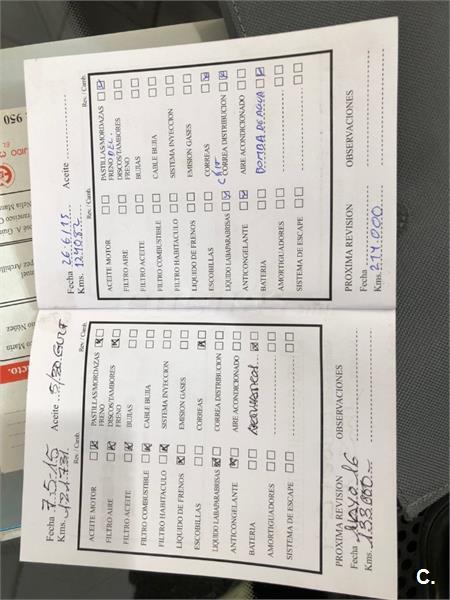 Fecha 7-5-15 Aceite
Kms. 121.731.
Rev. / Camb. Rev. / Camb.
ACEITE MOTOR PASTILLAS/MORDAZAS FRENO
FILTRO AIRE DISCOS/TAMBORES FRENO
FILTRO ACEITE BUJIAS
FILTRO COMBUSTIBLE CABLE BUJIA
FILTRO HABITACULO SISTEMA INYECCION
LIQUIDO DE FRENOS EMISION GASES
ESCOBILLAS CORREAS
LIQUIDO LABAPARABRISAS CORREA DISTRIBUCION
ANTICONGELANTE AIRE ACONDICIONADO
BATERIA
AMORTIGUADORES
SISTEMA DE ESCAPE
PROXIMA REVISION OBSERVACIONES
Fecha MAYO-16
Kms. 138.000.-
Fecha 26/6/15 Aceite
Kms.
Rev. / Camb. Rev. / Camb.
ACEITE MOTOR PASTILLAS/MORDAZAS FRENO DEL
FILTRO AIRE DISCOS/TAMBORES FRENO
FILTRO ACEITE BUJIAS
FILTRO COMBUSTIBLE CABLE BUJIA
FILTRO HABITACULO SISTEMA INYECCION
LIQUIDO DE FRENOS EMISION GASES
ESCOBILLAS CORREAS
LIQUIDO LABAPARABRISAS CORREA DISTRIBUCION
ANTICONGELANTE AIRE ACONDICIONADO
BATERIA BOMBA DE AGUA
AMORTIGUADORES
SISTEMA DE ESCAPE
PROXIMA REVISION OBSERVACIONES
Fecha
Kms. 214.000
950
C.